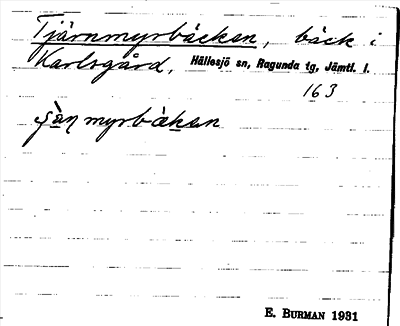 Tjärnmyrbäcken, bäck i
Karlsgård, Hällesjö sn, Ragunda tg, Jämtl. l.
163
myrbäkən
E. BURMAN 1931